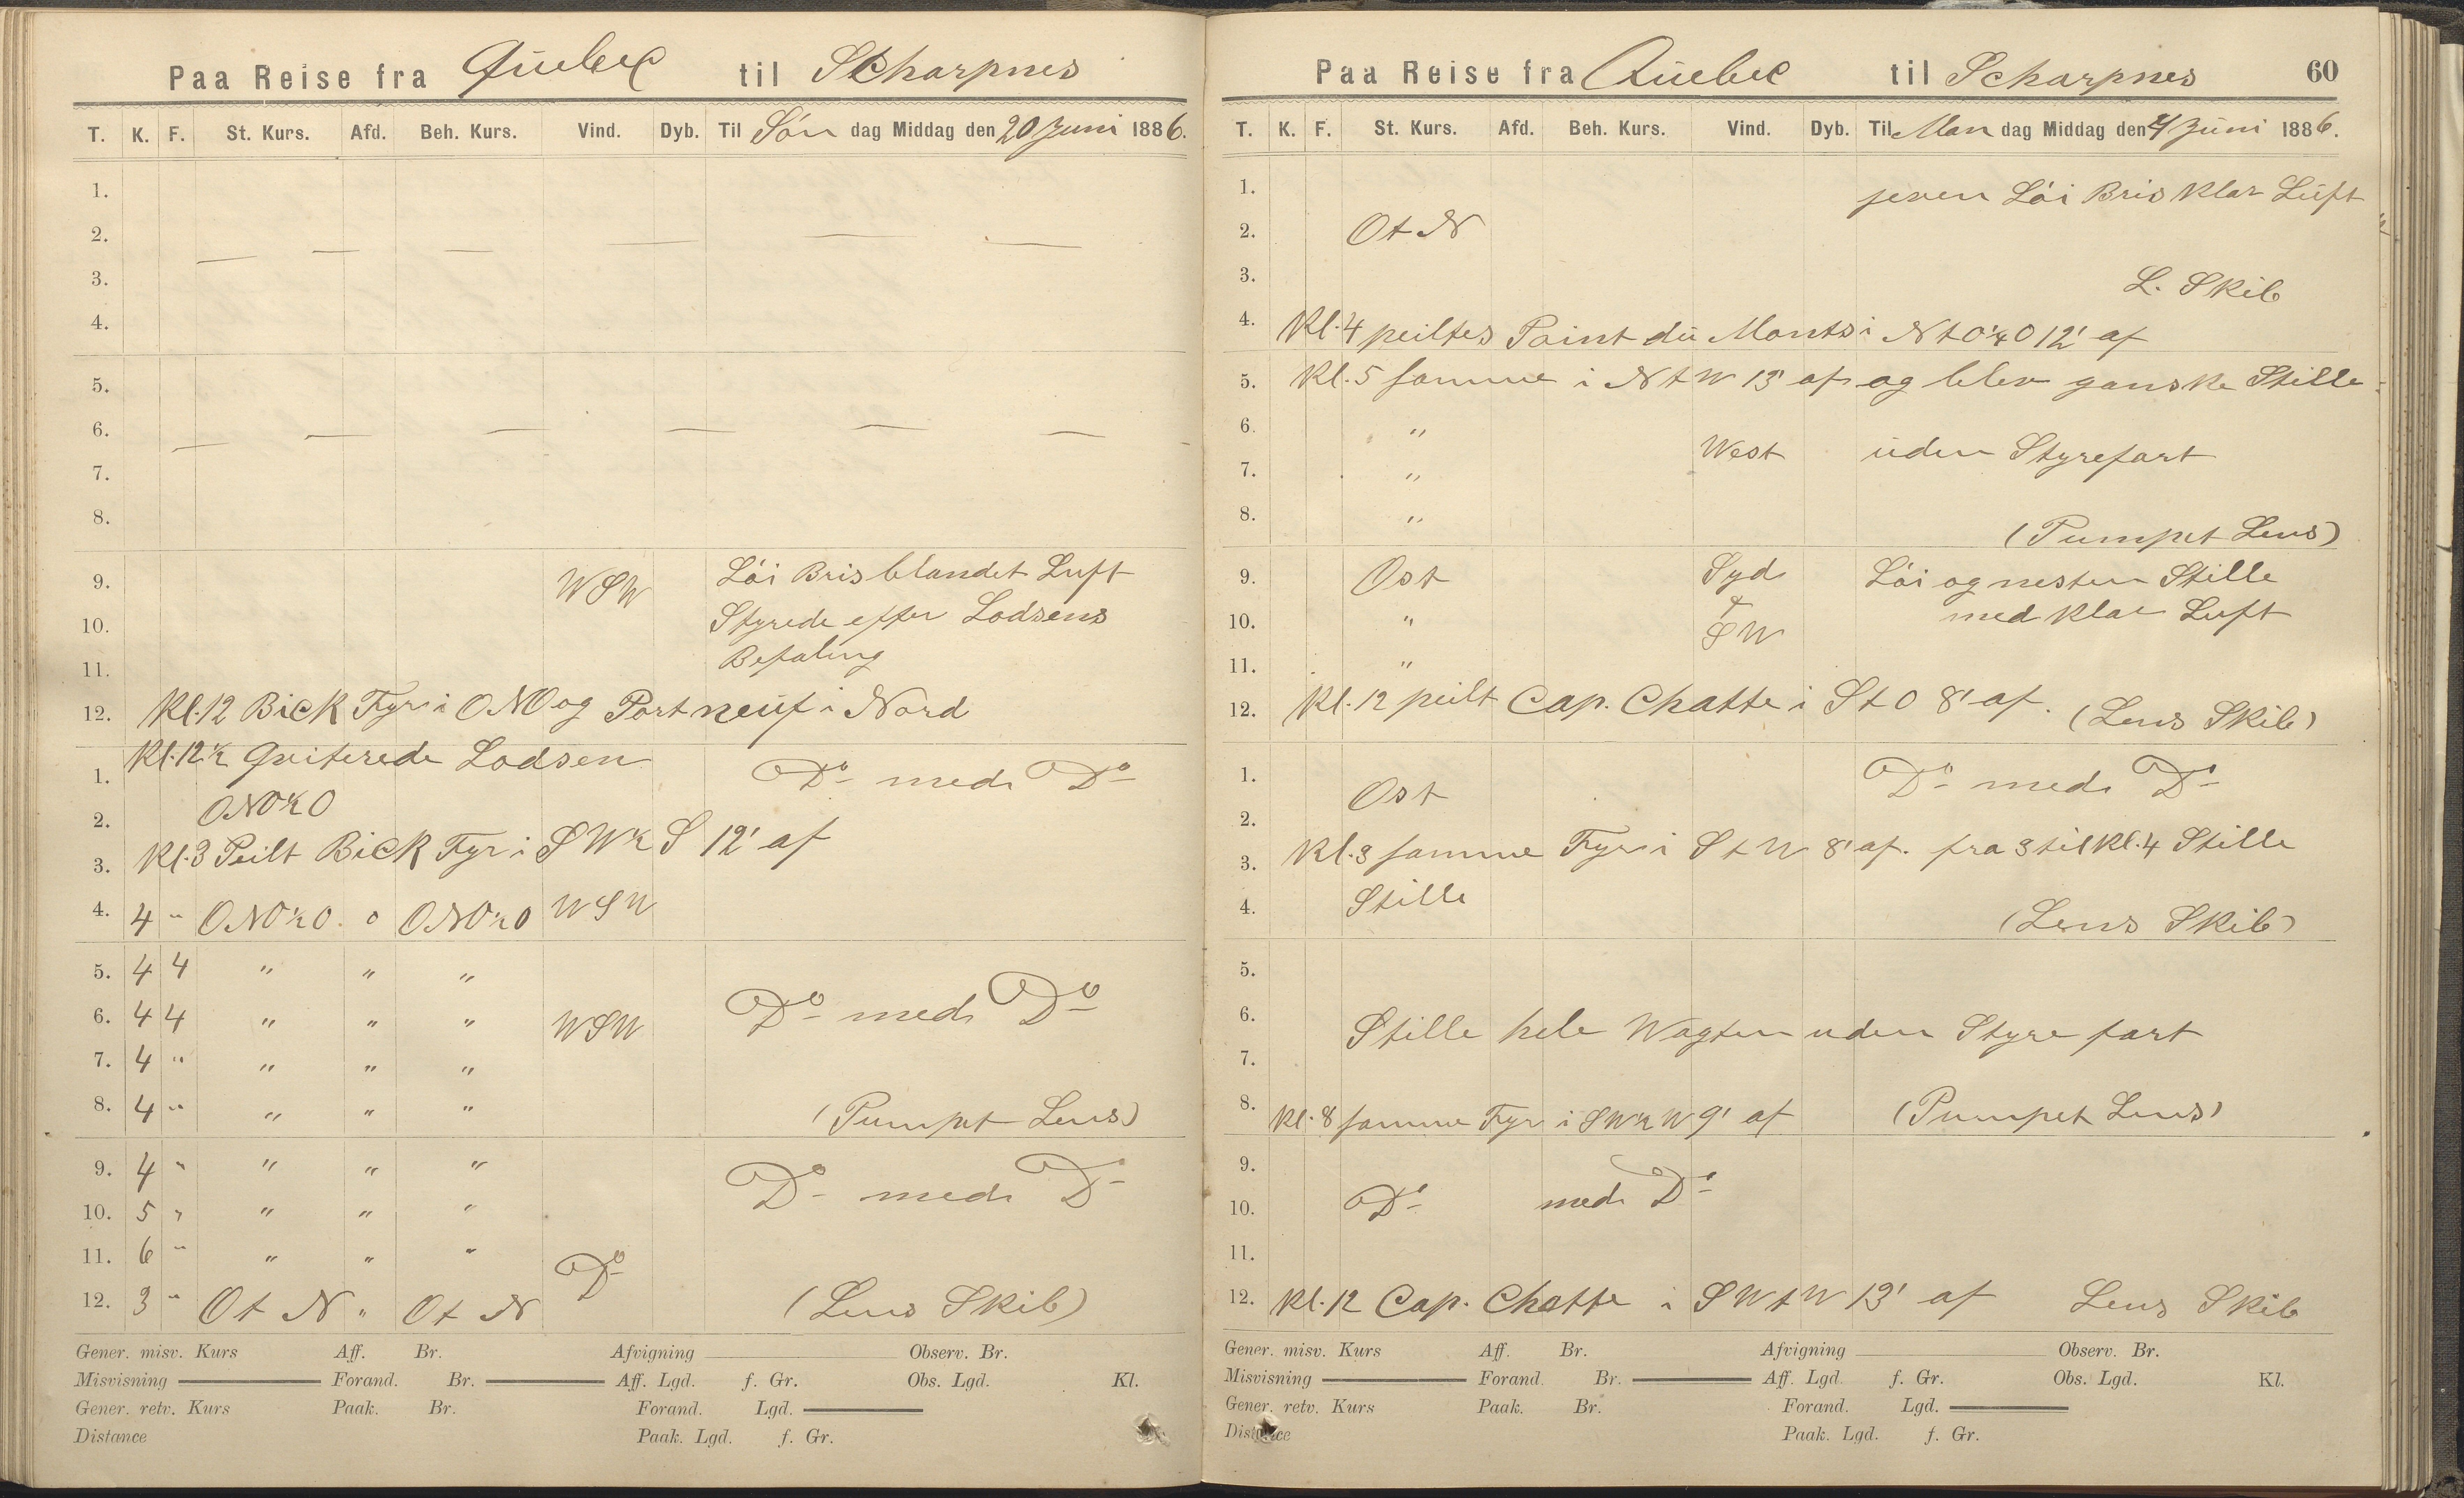 Paa Reise fra Quebec til Scharpnes
T. K. F. St. Kurs. Afd. Beh. Kurs. Vind. Dyb. Til Søn dag Middag den 20 Juni 1886.
1.
2. — — — — — —
3.
4.
5.
6. — — — — — —
7.
8.
9. WSW Löi Bris blandet Luft
10. Styrede efter Lodsens
11. Befaling
12. Kl. 12 Bick Fyr i ONO og Portneuf i Nord
Kl. 12½ Qviterede Lodsen
1. Do med Do
2. ONO½O
3. Kl. 3 Peilt Bick Fyr i SW½S 12' af
4. 4 " ONO½O. o ONO½O WSW
5. 4 4 " " "
6. 4 4 " " " WSW Do med Do
7. 4 " " " "
8. 4 " " " " (Pumpet Lens)
9. 4 " " " " Do med Do
10. 5 " " " "
11. 6 " " " " Do
12. 3 " Ot N " Ot N (Lens Skib)
Gener. misv. Kurs Aff. Br. Afvigning Observ. Br.
Misvisning Forand. Br. Aff. Lgd. f. Gr. Obs. Lgd. Kl.
Gener. retv. Kurs Paak. Br. Forand. Lgd.
Distance Paak. Lgd. f. Gr.
Paa Reise fra Quebec til Scharpnes 60
T. K. F. St. Kurs. Afd. Beh. Kurs. Vind. Dyb. Til Man dag Middag den 21 Juni 1886.
1. jeven Löi Bris Klar Luft
2. Ot N
3. L. Skib
4. Kl. 4 peiltes Point du Monts i NtO¼O 12' af
5. Kl. 5 samme i NtW 13' af og blev ganske Stille
6. " West uden Styrefart
7. "
8. " (Pumpet Lens)
9. Ost Syd Löi og nesten Stille
10. " t med Klar Luft
SW
11. "
12. Kl. 12 peilt Cap. Chatte i StO 8' af. (Lens Skib)
1. Ost Do med Do
2.
3. Kl. 3 samme Fyr i StW 8' af. fra 3 til Kl. 4 Stille
4. Stille (Lens Skib)
5.
6. Stille hele Wagten uden Styre fart
7.
8. Kl. 8 samme Fyr i SW½W 9' af (Pumpet Lens)
9.
10. Do med Do
11.
12. Kl. 12 Cap. Chatte i SWtW 13' af Lens Skib
Gener. misv. Kurs Aff. Br. Afvigning Observ. Br.
Misvisning Forand. Br. Aff. Lgd. f. Gr. Obs. Lgd. Kl.
Gener. retv. Kurs Paak. Br. Forand. Lgd.
Distance Paak. Lgd. f. Gr.